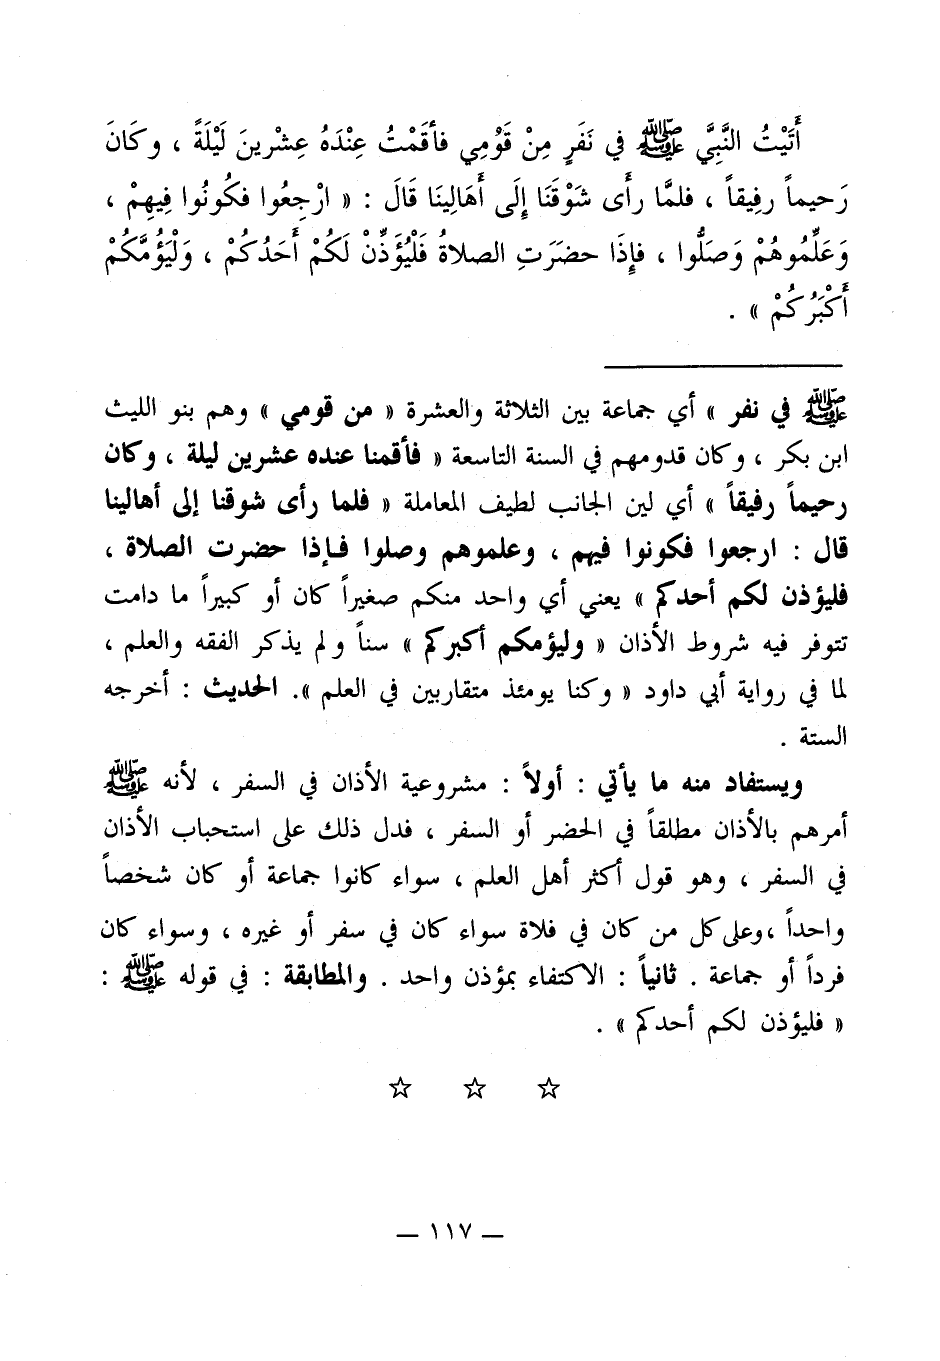 أَتَيْتُ النَّبِيَّ ﷺ في نَفَرٍ مِنْ قَوْمِي فأقَمْتُ عِنْدَهُ عِشْرينَ لَيْلَةً ، وكَانَ
رَحيماً رفِيقاً ، فلمَّا رأى شَوْقَنَا إلَى أهَالِينَا قَالَ : « ارْجِعُوا فكُونُوا فِيهِمْ ،
وَعَلِّمُوهُمْ وَصَلُّوا ، فإذَا حضَرَتِ الصلاةُ فَلْيُؤَذِّنْ لَكُمْ أحَدُكُمْ ، وَلْيَؤُمَّكُمْ
أَكْبَرُكُمْ » .
ﷺ في نفر » أي جماعة بين الثلاثة والعشرة « من قومي » وهم بنو الليث
ابن بكر ، وكان قدومهم في السنة التاسعة « فأقمنا عنده عشرين ليلة ، وكان
رحيماً رفيقاً » أي لين الجانب لطيف المعاملة « فلما رأى شوقنا إلى أهالينا
قال : ارجعوا فكونوا فيهم ، وعلموهم وصلوا فإذا حضرت الصلاة ،
فليؤذن لكم أحدكم » يعني أي واحد منكم صغيراً كان أو كبيراً ما دامت
تتوفر فيه شروط الأذان « وليؤمكم أكبركم » سناً ولم يذكر الفقه والعلم ،
لما في رواية أبي داود « وكنا يومئذ متقاربين في العلم ». الحديث : أخرجه
الستة .
ويستفاد منه ما يأتي : أولاً : مشروعية الأذان في السفر ، لأنه ﷺ
أمرهم بالأذان مطلقاً في الحضر أو السفر ، فدل ذلك على استحباب الأذان
في السفر ، وهو قول أكثر أهل العلم ، سواء كانوا جماعة أو كان شخصاً
واحداً ،وعلى كل من كان في فلاة سواء كان في سفر أو غيره ، وسواء كان
فرداً أو جماعة . ثانياً : الاكتفاء بمؤذن واحد . والمطابقة : في قوله ﷺ :
« فليؤذن لكم أحدكم » .
☆ ☆ ☆
— ١١٧ —